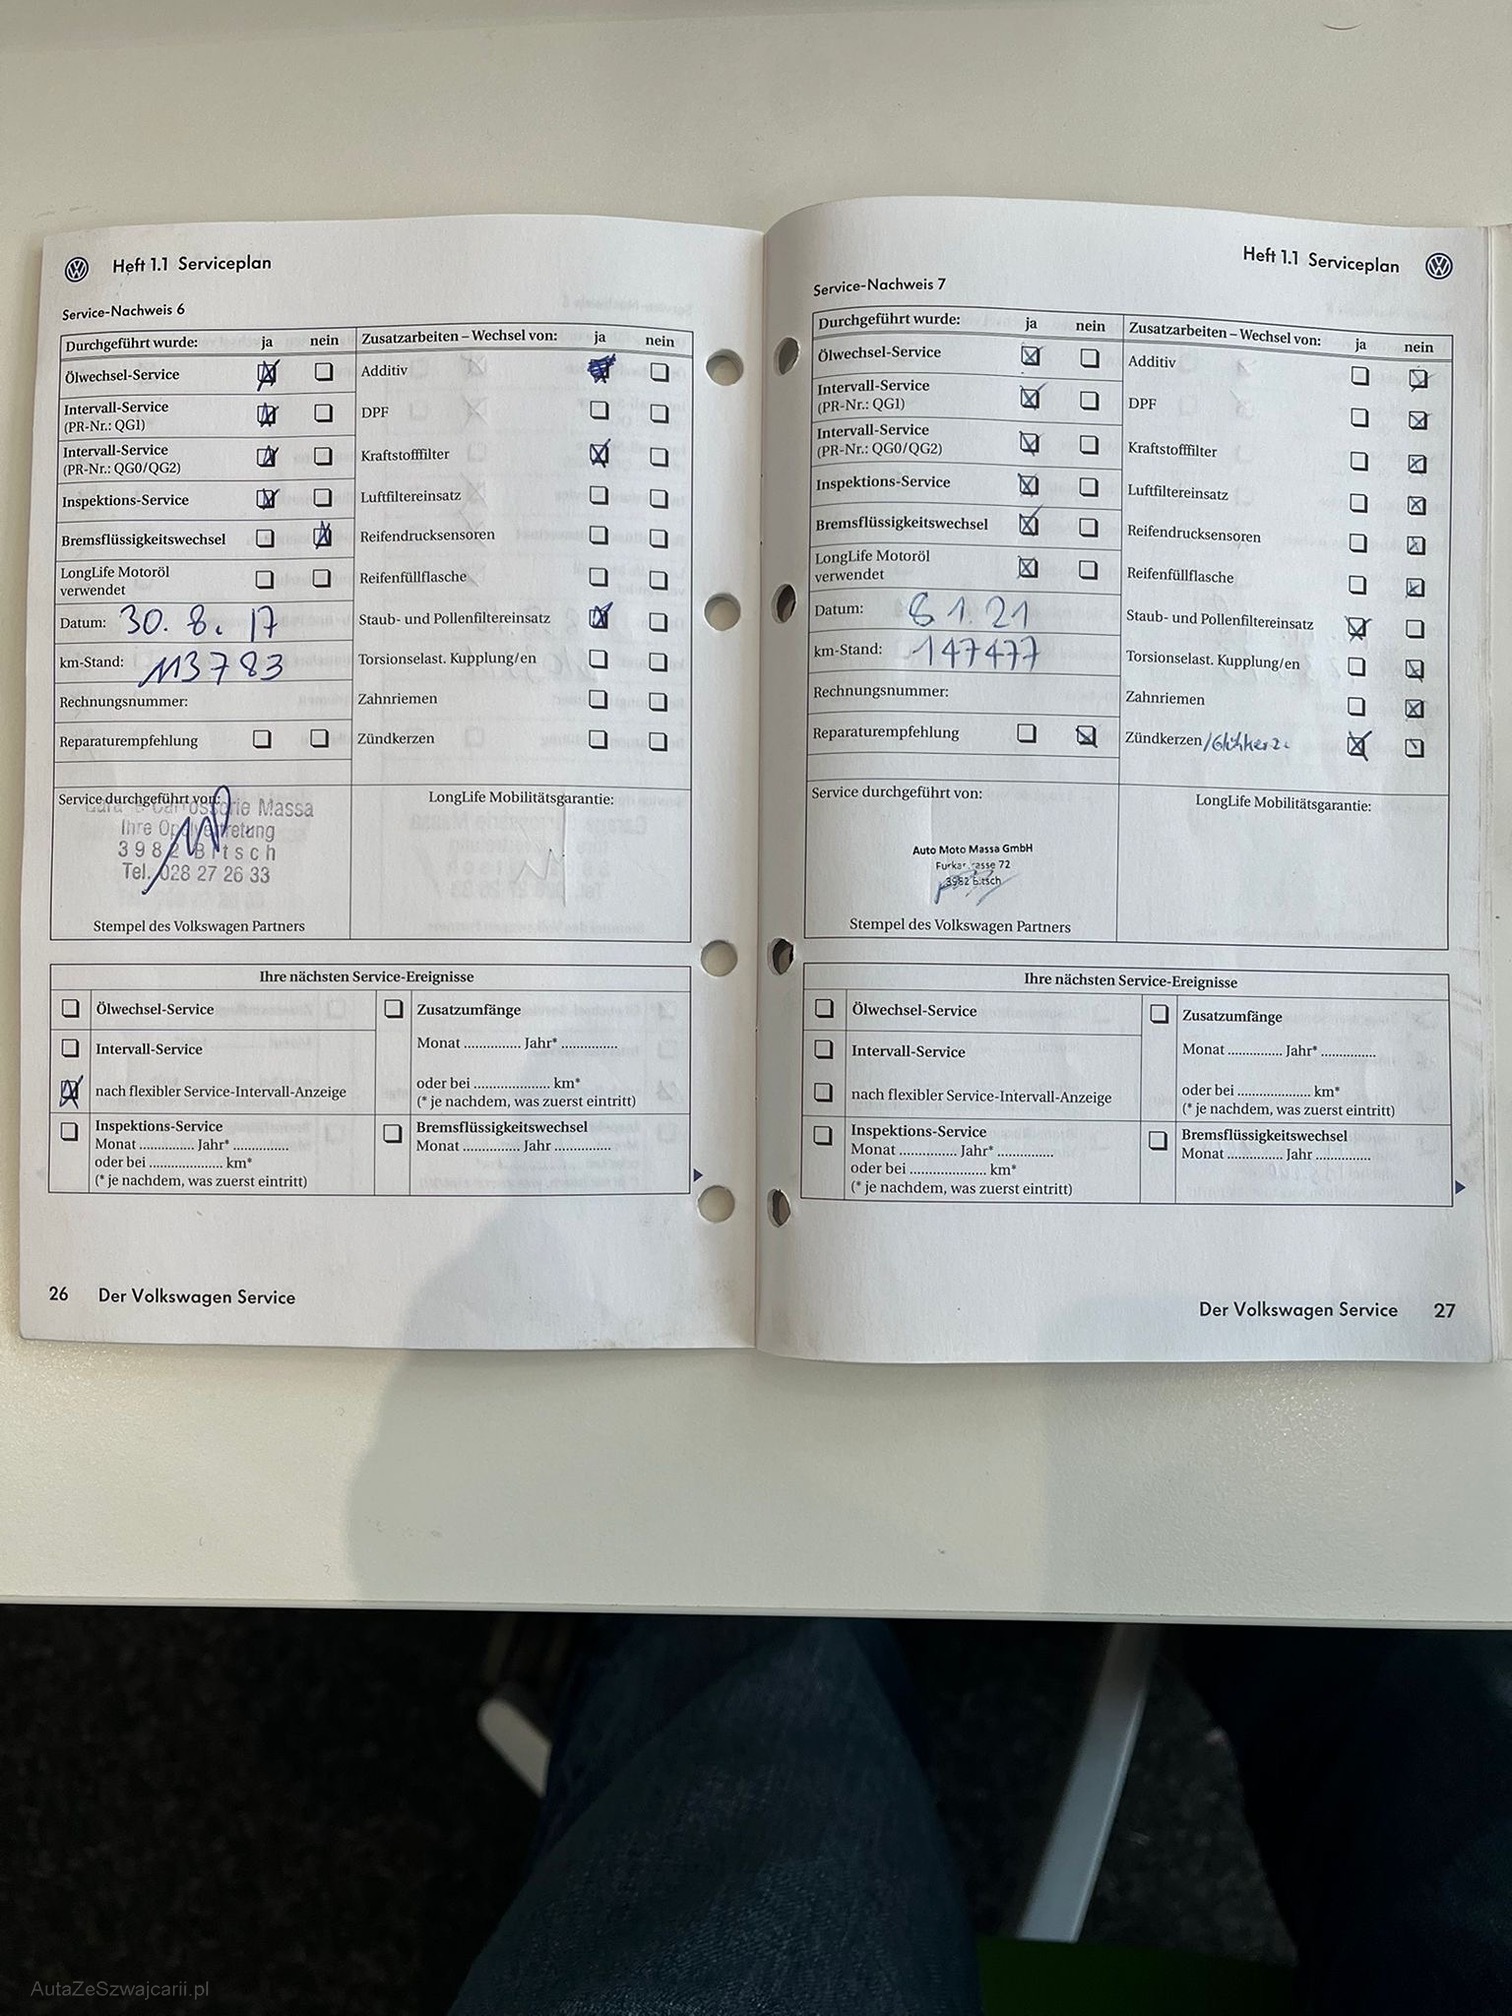 Heft 1.1 Serviceplan
Service-Nachweis 6
Durchgeführt wurde: ja nein
Ölwechsel-Service
Intervall-Service
(PR-Nr.: QG1)
Intervall-Service
(PR-Nr.: QG0/QG2)
Inspektions-Service
Bremsflüssigkeitswechsel
LongLife Motoröl
verwendet
Datum: 30. 8. 17
km-Stand: 113783
Rechnungsnummer:
Reparaturempfehlung
Zusatzarbeiten – Wechsel von: ja nein
Additiv
DPF
Kraftstofffilter
Luftfiltereinsatz
Reifendrucksensoren
Reifenfüllflasche
Staub- und Pollenfiltereinsatz
Torsionselast. Kupplung/en
Zahnriemen
Zündkerzen
Service durchgeführt von:
Carrosserie Massa
Ihre Opelvertretung
3982 Bitsch
Tel. 028 27 26 33
Stempel des Volkswagen Partners
LongLife Mobilitätsgarantie:
Ihre nächsten Service-Ereignisse
Ölwechsel-Service
Intervall-Service
nach flexibler Service-Intervall-Anzeige
Inspektions-Service
Monat .............. Jahr* ..............
oder bei ................... km*
(* je nachdem, was zuerst eintritt)
Zusatzumfänge
Monat .............. Jahr* ..............
oder bei ................... km*
(* je nachdem, was zuerst eintritt)
Bremsflüssigkeitswechsel
Monat .............. Jahr ..............
26 Der Volkswagen Service
Heft 1.1 Serviceplan
Service-Nachweis 7
Durchgeführt wurde: ja nein
Ölwechsel-Service
Intervall-Service
(PR-Nr.: QG1)
Intervall-Service
(PR-Nr.: QG0/QG2)
Inspektions-Service
Bremsflüssigkeitswechsel
LongLife Motoröl
verwendet
Datum: 8 1. 21
km-Stand: 147477
Rechnungsnummer:
Reparaturempfehlung
Zusatzarbeiten – Wechsel von: ja nein
Additiv
DPF
Kraftstofffilter
Luftfiltereinsatz
Reifendrucksensoren
Reifenfüllflasche
Staub- und Pollenfiltereinsatz
Torsionselast. Kupplung/en
Zahnriemen
Zündkerzen /Glühkerz.
Service durchgeführt von:
Auto Moto Massa GmbH
72
3982 Bitsch
Stempel des Volkswagen Partners
LongLife Mobilitätsgarantie:
Ihre nächsten Service-Ereignisse
Ölwechsel-Service
Intervall-Service
nach flexibler Service-Intervall-Anzeige
Inspektions-Service
Monat .............. Jahr* ..............
oder bei ................... km*
(* je nachdem, was zuerst eintritt)
Zusatzumfänge
Monat .............. Jahr* ..............
oder bei ................... km*
(* je nachdem, was zuerst eintritt)
Bremsflüssigkeitswechsel
Monat .............. Jahr ..............
Der Volkswagen Service 27
AutaZeSzwajcarii.pl